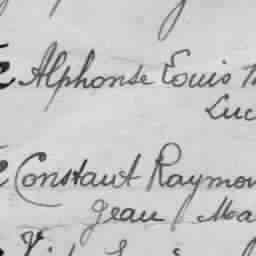 Alphonse Louis
Luc
Constant Raymon
Jean Ma